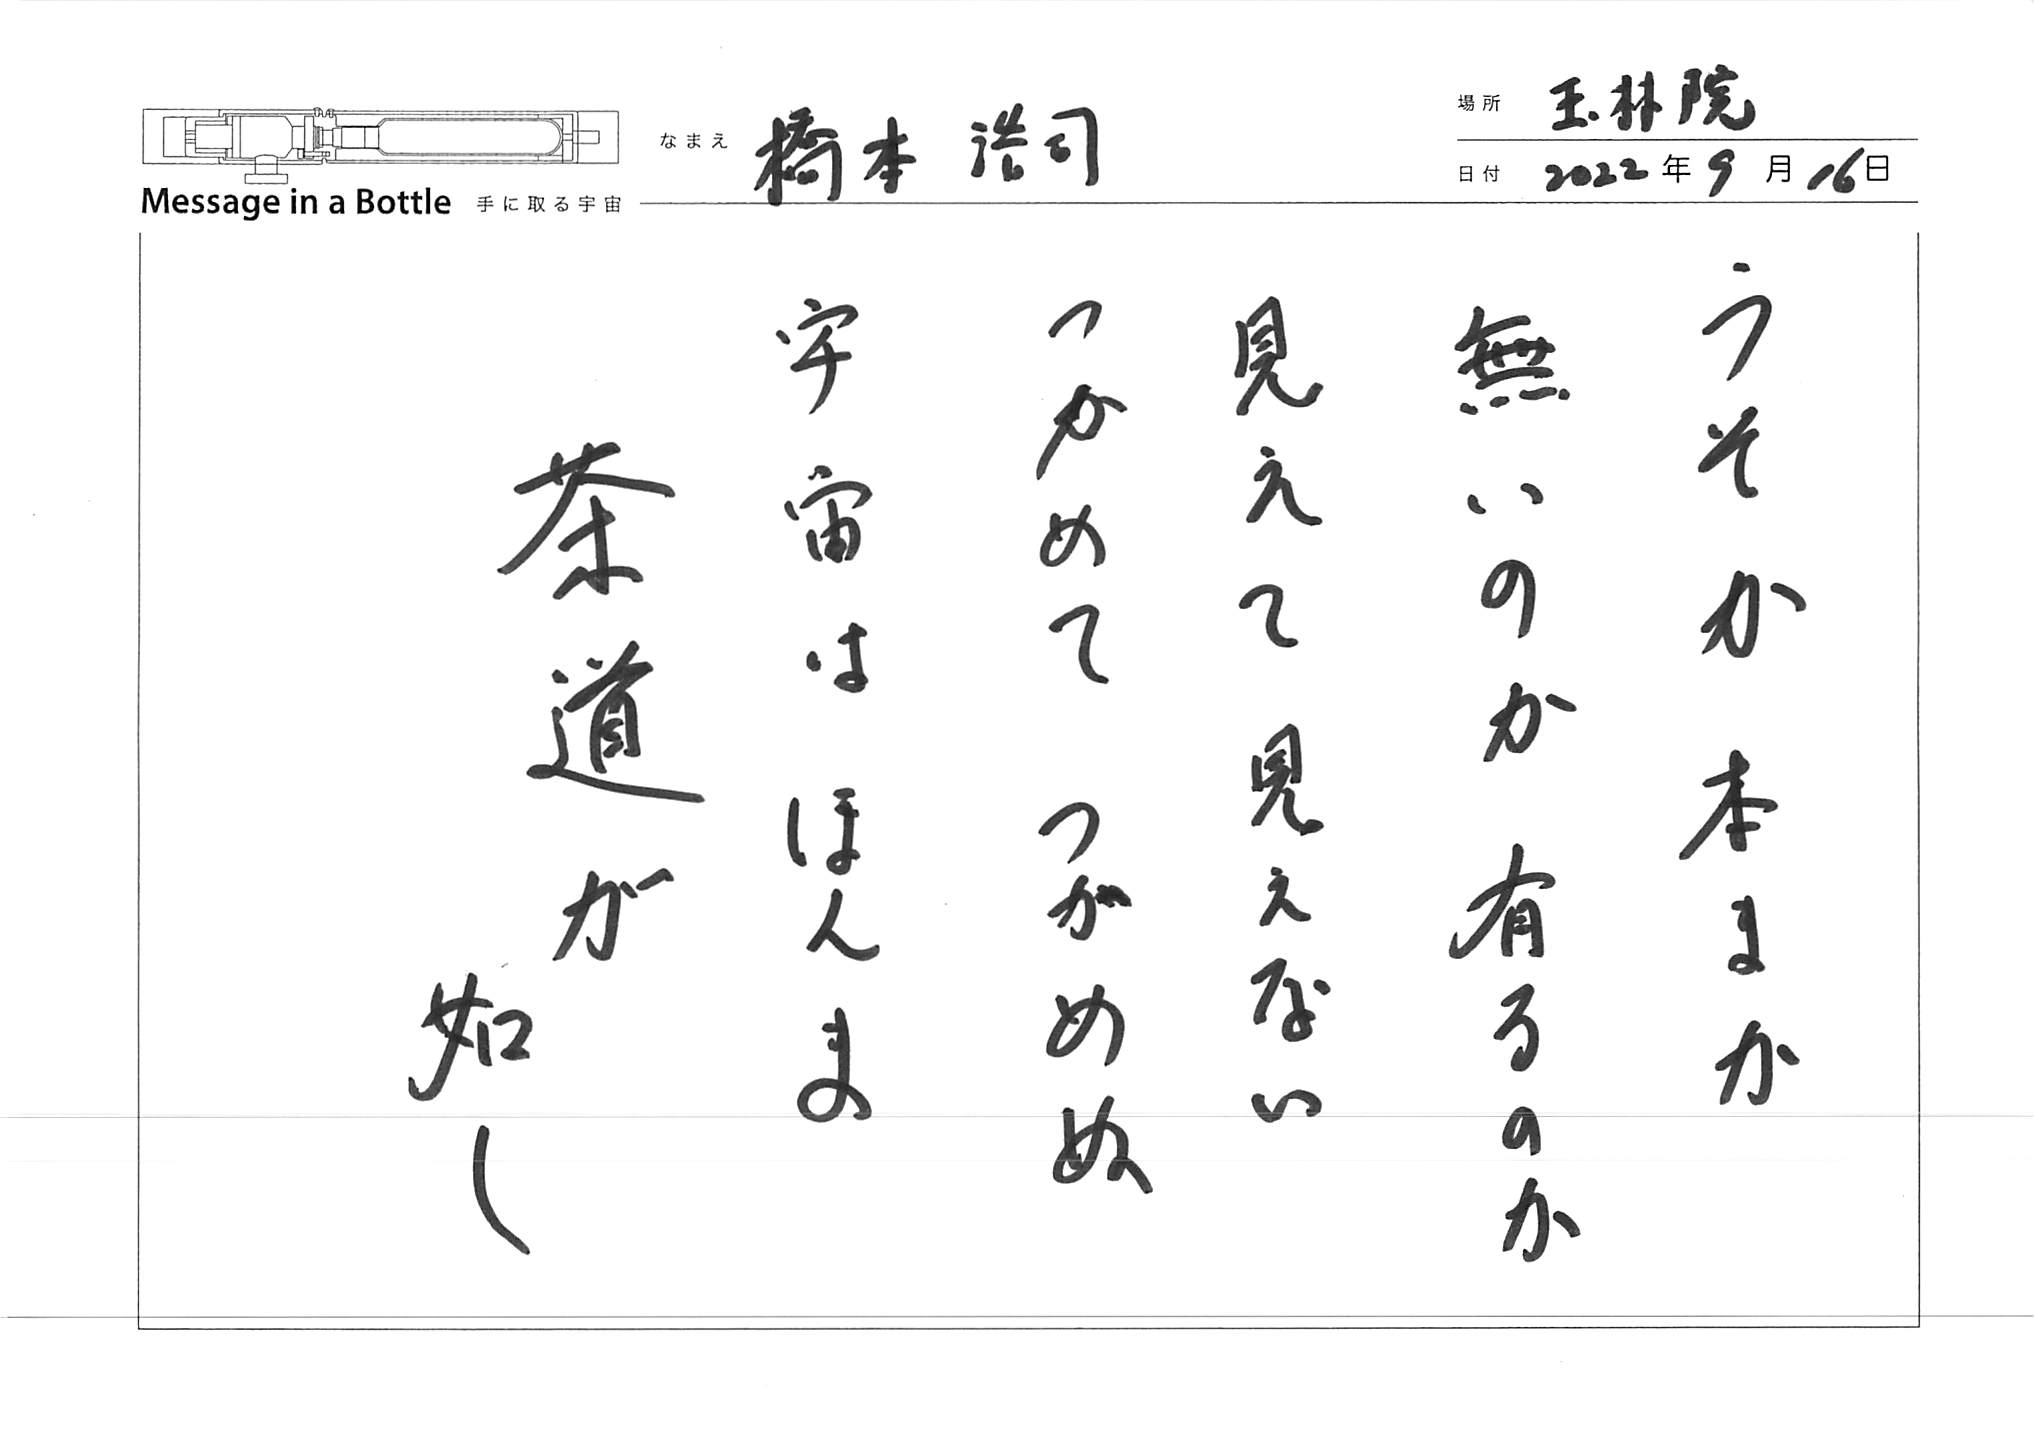 Message in a Bottle 手に取る宇宙
なまえ 橋本 浩司
場所 玉林院
日付 2022年9月16日
うそか本まか
無いのか有るのか
見えて見えない
つかめてつかめぬ
宇宙はほんま
茶道が
如し